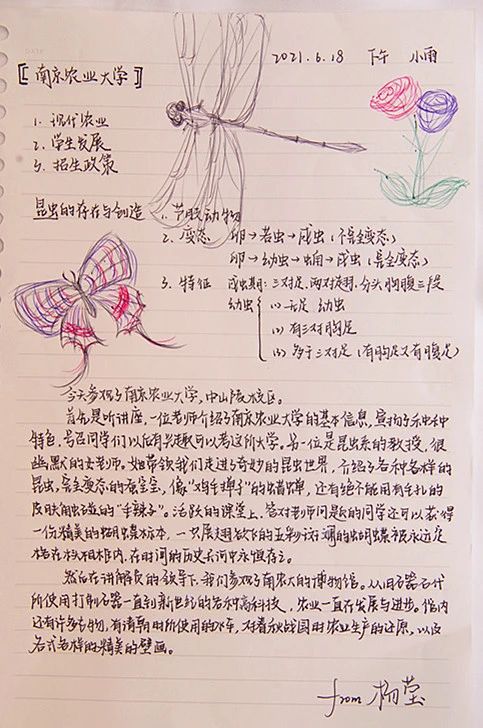 2021.6.18 下午 小雨
【南京农业大学】
1. 现代农业
2. 学生发展
3. 招生政策
昆虫的存在与创造 1. 节肢动物
2. 变态 卵→若虫→成虫(不完全变态)
卵→幼虫→蛹→成虫(完全变态)
3. 特征 成虫期:三对足,两对翅,分头胸腹三段
幼虫 (1) 无足 幼虫
(2) 有三对胸足
(3) 多于三对足(有胸足又有腹足)
今天参观了南京农业大学,中山陵校区。
首先是听讲座,一位老师介绍了南京农业大学的基本信息,宣扬了和
特色,号召同学们以后有兴趣可以考这所大学。另一位是昆虫系的教授,很
幽默的女老师。她带领我们走进了奇妙的昆虫世界,介绍了各种各样的
昆虫,完全变态的蚕宝宝,像“鸡毛掸子”的蜡蝉,还有绝不能用有毛孔的
皮肤触碰的“毛辣子”。活跃的课堂上,答对老师问题的同学还可以获得
一份精美的蝴蝶标本,一只展翅欲飞的五彩斑斓的蝴蝶被永远定
格在相框内,在时间的历史长河中永恒存在。
然后在讲解员的领导下,我们参观了南农大的博物馆。从旧石器石代
所使用打制石器一直到新世纪的各种高科技,农业一直在发展与进步。馆内
还有许多文物,有清朝时所使用的水车,对春秋战国时农业生产的还原,以及
各式各样的精美的壁画。
from 杨莹